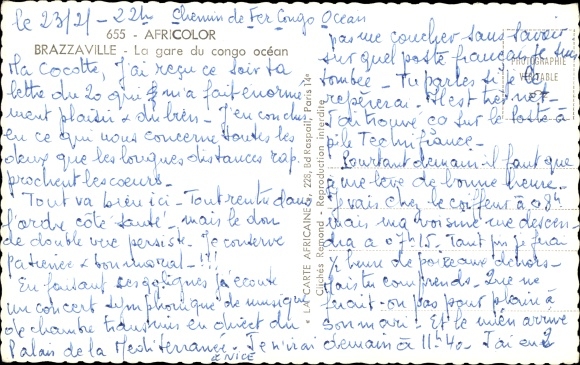 le 23/2/ - 22h Chemin de Fer Congo Ocean
655 - AFRICOLOR
BRAZZAVILLE - La gare du congo océan
Ma Cocotte, j'ai reçu ce soir ta
lettre du 20 qui m'a fait enormé
ment plaisir & du bien - J'en conclus
en ce qui nous concerne toutes les
deux que les longues distances rap
prochent les coeurs -
Tout va bien ici - Tout rentre dans
l'ordre côté "santé" mais le don
de double vue persiste - Je conserve
patience & bon moral - !!!
En faisant ces qq lignes j'écoute
un concert symphonique de musique
de chambre transmis en direct du
Palais de la Mediterranée -
à NICE
LA CARTE AFRICAINE - 228, Bd Raspail, Paris 14e
Clichés Remond - Reproduction interdite
PHOTOGRAPHIE
VÉRITABLE
pas me coucher sans savoir
sur quel poste français je suis
tombée - Tu parles si je le
repèrerai - Il est très net -
J'ai trouvé ça sur le poste à
pile Technifrance -
Pourtant demain il faut que
je me lève de bonne heure -
Je vais chez le coiffeur à 08h
mais ma voisine me descen-
dra à 07h15. Tant pis je ferai
½ heure de poireaux dehors -
mais tu comprends - Que ne
ferait-on pas pour plaire à
son mari - Et le mien arrive
Je n'irai demain à 11h40 - J'ai en